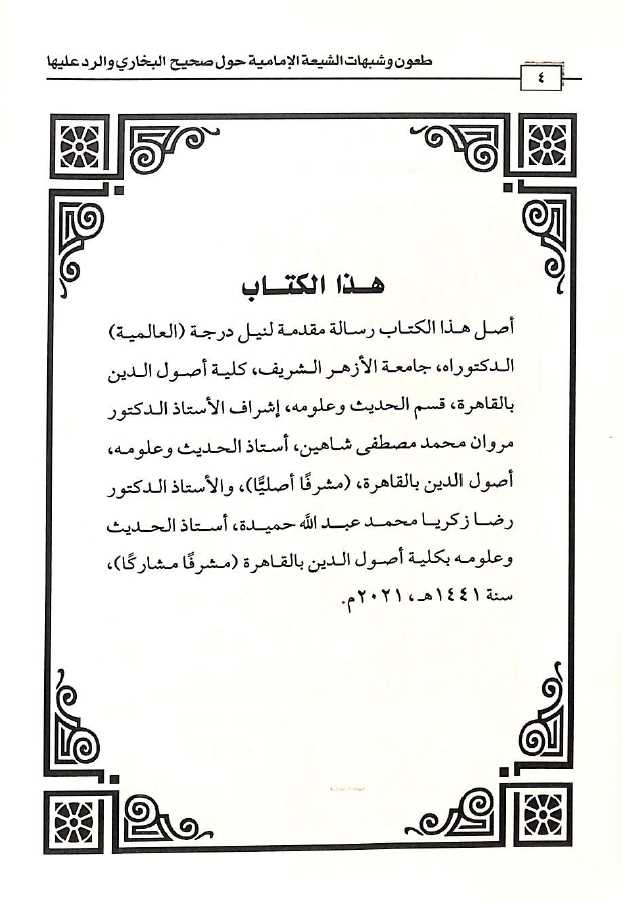 طعون وشبهات الشيعة الإمامية حول صحيح البخاري والرد عليها
٤
هـذا الكتـاب
أصـل هـذا الكتـاب رسـالة مقدمـة لنيـل درجـة (العالميـة)
الـدكتوراه، جامعـة الأزهـر الشـريف، كليـة أصـول الـدين
بالقاهرة، قسـم الحديث وعلومه، إشراف الأستاذ الدكتور
مروان محمد مصطفى شاهين، أستاذ الحديث وعلومه،
أصول الدين بالقاهرة، (مشرفًا أصليًّا)، والأستاذ الدكتور
رضـا زكريـا محمـد عبـد الله حميـدة، أسـتاذ الحـديث
وعلومه بكلية أصول الدين بالقاهرة (مشرفًا مشاركًا)،
سنة ١٤٤١هـ، ٢٠٢١م.